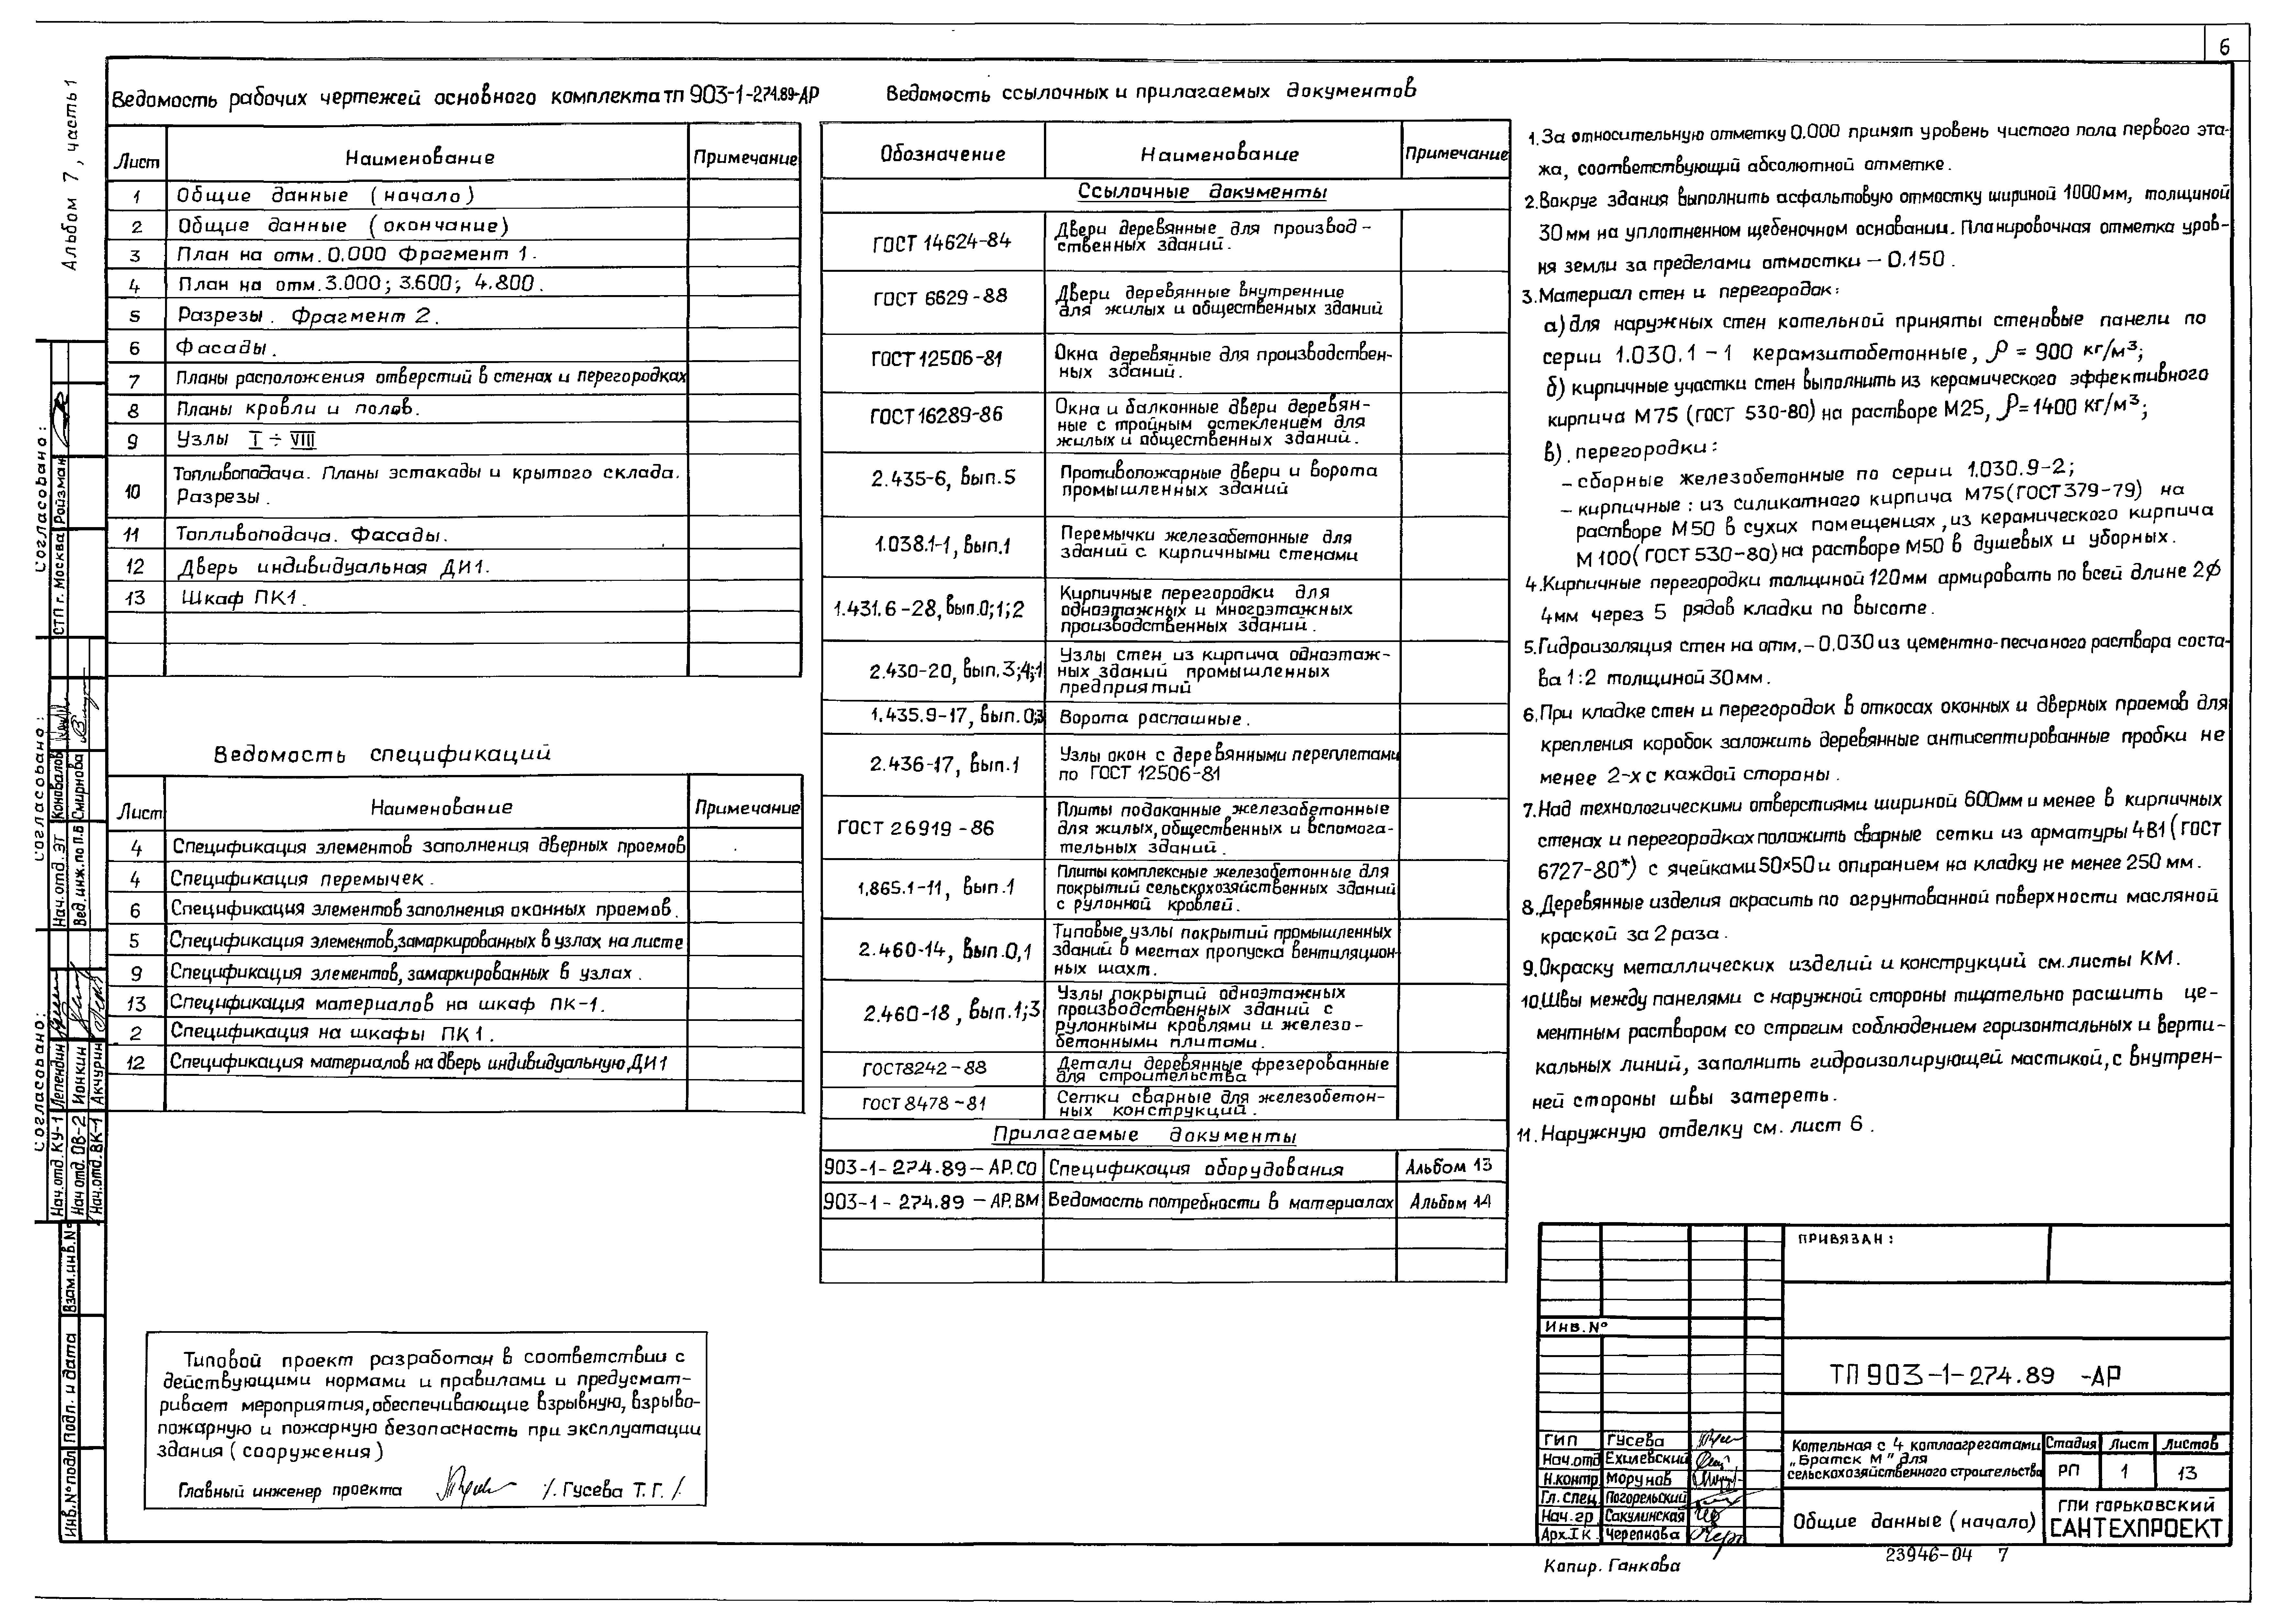 6
Альбом 7, часть 1
Ведомость рабочих чертежей основного комплекта ТП 903-1-274.89-АР
Лист Наименование Примечание
1 Общие данные (начало)
2 Общие данные (окончание)
3 План на отм. 0.000 Фрагмент 1.
4 План на отм. 3.000; 3.600; 4.800.
5 Разрезы. Фрагмент 2.
6 Фасады.
7 Планы расположения отверстий в стенах и перегородках
8 Планы кровли и полов.
9 Узлы I ÷ VIII
10 Топливоподача. Планы эстакады и крытого склада.
Разрезы.
11 Топливоподача. Фасады.
12 Дверь индивидуальная ДИ1.
13 Шкаф ПК1.
Ведомость спецификаций
Лист Наименование Примечание
4 Спецификация элементов заполнения дверных проемов
4 Спецификация перемычек.
6 Спецификация элементов заполнения оконных проемов.
5 Спецификация элементов, замаркированных в узлах на листе
9 Спецификация элементов, замаркированных в узлах.
13 Спецификация материалов на шкаф ПК-1.
2 Спецификация на шкафы ПК1.
12 Спецификация материалов на дверь индивидуальную ДИ1
Типовой проект разработан в соответствии с
действующими нормами и правилами и предусмат-
ривает мероприятия, обеспечивающие взрывную, взрыво-
пожарную и пожарную безопасность при эксплуатации
здания (сооружения)
Главный инженер проекта /. Гусева Т. Г. /.
Ведомость ссылочных и прилагаемых документов
Обозначение Наименование Примечание
Ссылочные документы
ГОСТ 14624-84 Двери деревянные для производ-
ственных зданий.
ГОСТ 6629-88 Двери деревянные внутренние
для жилых и общественных зданий
ГОСТ 12506-81 Окна деревянные для производствен-
ных зданий.
ГОСТ 16289-86 Окна и балконные двери деревян-
ные с тройным остеклением для
жилых и общественных зданий.
2.435-6, вып.5 Противопожарные двери и ворота
промышленных зданий
1.038.1-1, вып.1 Перемычки железобетонные для
зданий с кирпичными стенами
1.431.6-28, вып.0;1;2 Кирпичные перегородки для
одноэтажных и многоэтажных
производственных зданий.
2.430-20, вып.3;4;1 Узлы стен из кирпича одноэтаж-
ных зданий промышленных
предприятий
1.435.9-17, вып.0;3 Ворота распашные.
2.436-17, вып.1 Узлы окон с деревянными переплетами
по ГОСТ 12506-81
ГОСТ 26919-86 Плиты подоконные железобетонные
для жилых, общественных и вспомога-
тельных зданий.
1.865.1-11, вып.1 Плиты комплексные железобетонные для
покрытий сельскохозяйственных зданий
с рулонной кровлей.
2.460-14, вып.0,1 Типовые узлы покрытий промышленных
зданий в местах пропуска вентиляцион-
ных шахт.
2.460-18, вып.1;3 Узлы покрытий одноэтажных
производственных зданий с
рулонными кровлями и железо-
бетонными плитами.
ГОСТ 8242-88 Детали деревянные фрезерованные
для строительства
ГОСТ 8478-81 Сетки сварные для железобетон-
ных конструкций.
Прилагаемые документы
903-1-274.89-АР.СО Спецификация оборудования Альбом 13
903-1-274.89-АР.ВМ Ведомость потребности в материалах Альбом 14
1. За относительную отметку 0.000 принят уровень чистого пола первого эта-
жа, соответствующий абсолютной отметке.
2. Вокруг здания выполнить асфальтовую отмостку шириной 1000мм, толщиной
30мм на уплотненном щебеночном основании. Планировочная отметка уров-
ня земли за пределами отмостки – 0.150.
3. Материал стен и перегородок:
а) для наружных стен котельной приняты стеновые панели по
серии 1.030.1-1 керамзитобетонные, ρ = 900 кг/м³;
б) кирпичные участки стен выполнить из керамического эффективного
кирпича М75 (ГОСТ 530-80) на растворе М25, ρ=1400 кг/м³;
в). перегородки:
– сборные железобетонные по серии 1.030.9-2;
– кирпичные: из силикатного кирпича М75(ГОСТ 379-79) на
растворе М50 в сухих помещениях, из керамического кирпича
М100(ГОСТ 530-80) на растворе М50 в душевых и уборных.
4. Кирпичные перегородки толщиной 120мм армировать по всей длине 2ϕ
4мм через 5 рядов кладки по высоте.
5. Гидроизоляция стен на отм. – 0.030 из цементно-песчаного раствора соста-
ва 1:2 толщиной 30мм.
6. При кладке стен и перегородок в откосах оконных и дверных проемов для
крепления коробок заложить деревянные антисептированные пробки не
менее 2-х с каждой стороны.
7. Над технологическими отверстиями шириной 600мм и менее в кирпичных
стенах и перегородках положить сварные сетки из арматуры 4В1 (ГОСТ
6727-80*) с ячейками 50×50 и опиранием на кладку не менее 250 мм.
8. Деревянные изделия окрасить по огрунтованной поверхности масляной
краской за 2 раза.
9. Окраску металлических изделий и конструкций см. листы КМ.
10. Швы между панелями с наружной стороны тщательно расшить це-
ментным раствором со строгим соблюдением горизонтальных и верти-
кальных линий, заполнить гидроизолирующей мастикой, с внутрен-
ней стороны швы затереть.
11. Наружную отделку см. лист 6.
ПРИВЯЗАН:
Инв. №
ТП 903-1-274.89 -АР
ГИП Гусева
Нач.отд Ехилевский
Н.контр Морунов
Гл. спец. Погорельский
Нач.гр Сакулинская
Арх.I к. Черепнова
Котельная с 4 котлоагрегатами
„Братск М" для
сельскохозяйственного строительства
Стадия Лист Листов
РП 1 13
Общие данные (начало)
ГПИ ГОРЬКОВСКИЙ
САНТЕХПРОЕКТ
Копир. Ганкова
23946-04 7
Согласовано:
СТП г. Москва Ройзман
Согласовано:
Нач. отд. ЭТ Коновалов
Вед. инж. по П.В Смирнова
Согласовано:
Нач. отд. КУ-1 Лепендин
Нач отд. ОВ-2 Ионкин
Нач. отд. ВК-1 Акчурин
Взам. инв. №
Подп. и дата
Инв. № подл